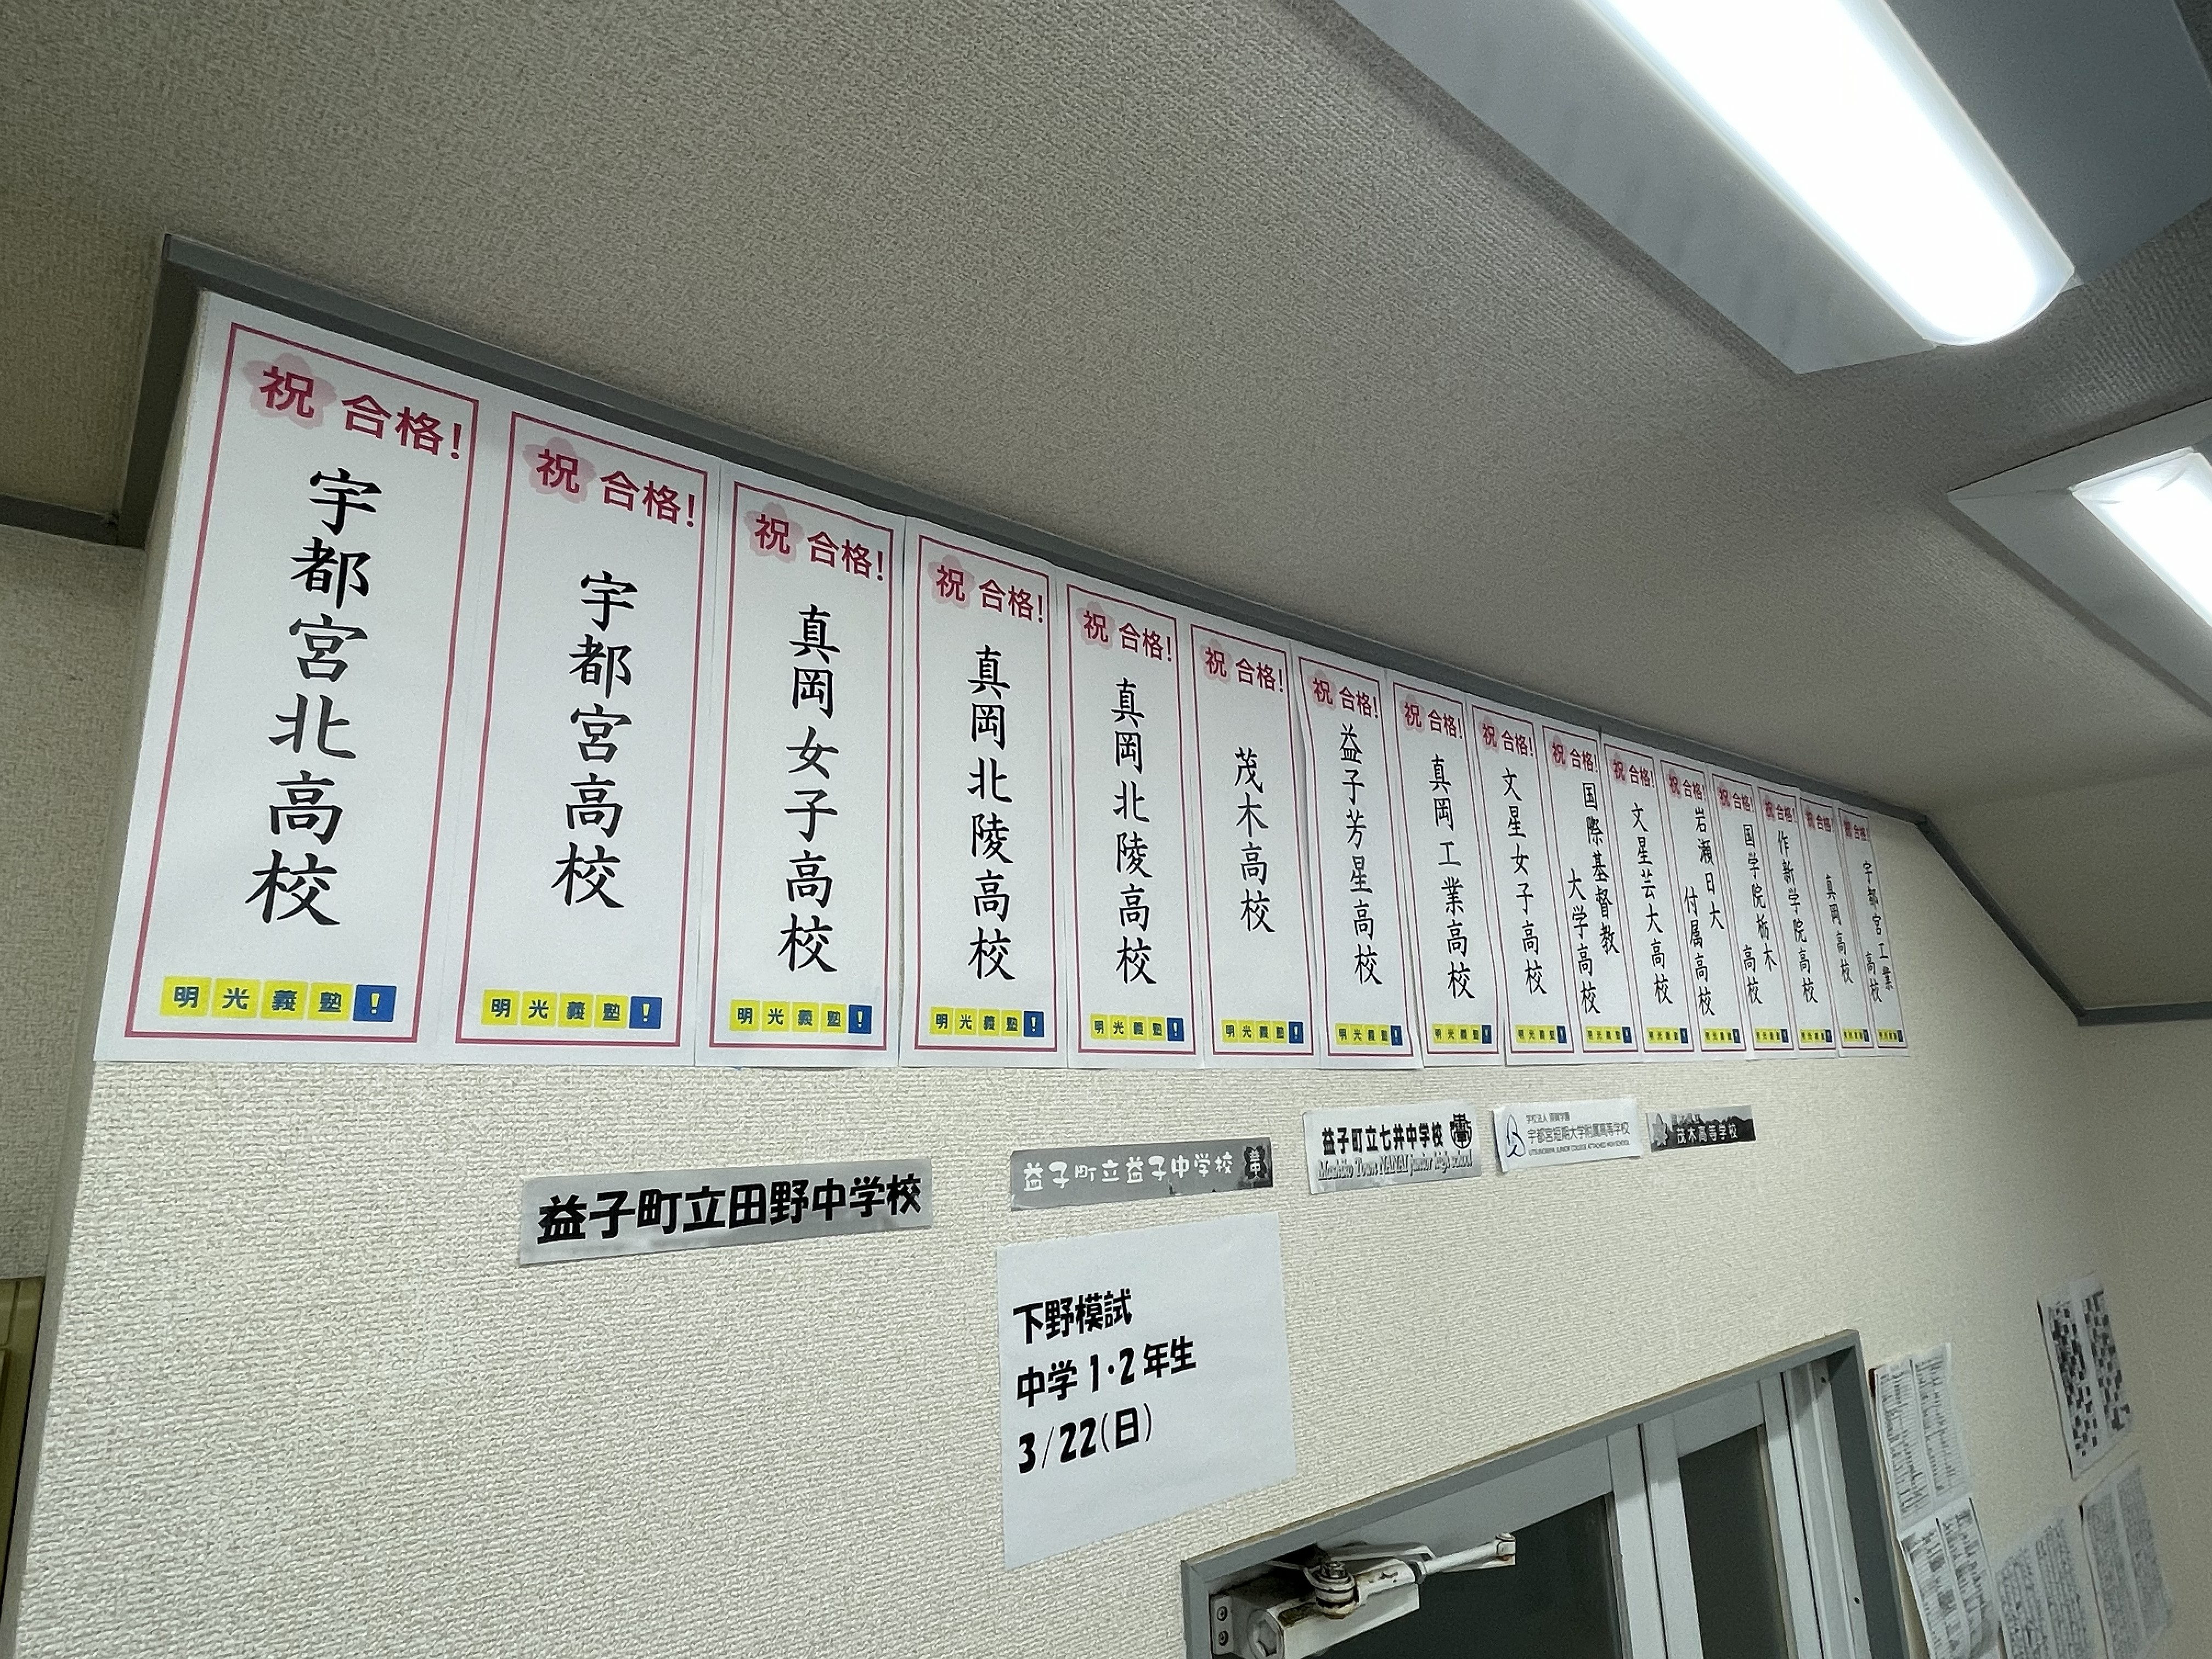 祝 合格!
宇都宮北高校
明光義塾!
祝 合格!
宇都宮高校
明光義塾!
祝 合格!
真岡女子高校
明光義塾!
祝 合格!
真岡北陵高校
明光義塾!
祝 合格!
真岡北陵高校
明光義塾!
祝 合格!
茂木高校
明光義塾!
祝 合格!
益子芳星高校
明光義塾!
祝 合格!
真岡工業高校
明光義塾!
祝 合格!
文星女子高校
明光義塾!
祝 合格!
国際基督教
大学高校
明光義塾!
祝 合格!
文星芸大高校
明光義塾!
祝 合格!
岩瀬日大
付属高校
明光義塾!
祝 合格!
国学院栃木
高校
明光義塾!
祝 合格!
作新学院高校
明光義塾!
祝 合格!
真岡高校
明光義塾!
祝 合格!
宇都宮工業
高校
明光義塾!
益子町立田野中学校
益子町立益子中学校
益子町立七井中学校
Mashiko Town NANAI junior high school
宇都宮短期大学附属高等学校
UTSUNOMIYA JUNIOR COLLEGE ATTACHED HIGH SCHOOL
茂木高等学校
下野模試
中学1・2年生
3/22(日)